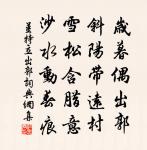 歲暮偶出郭
斜陽帶遠村
雪松含腊意
沙水動春痕
姜特立出郭詞典網集